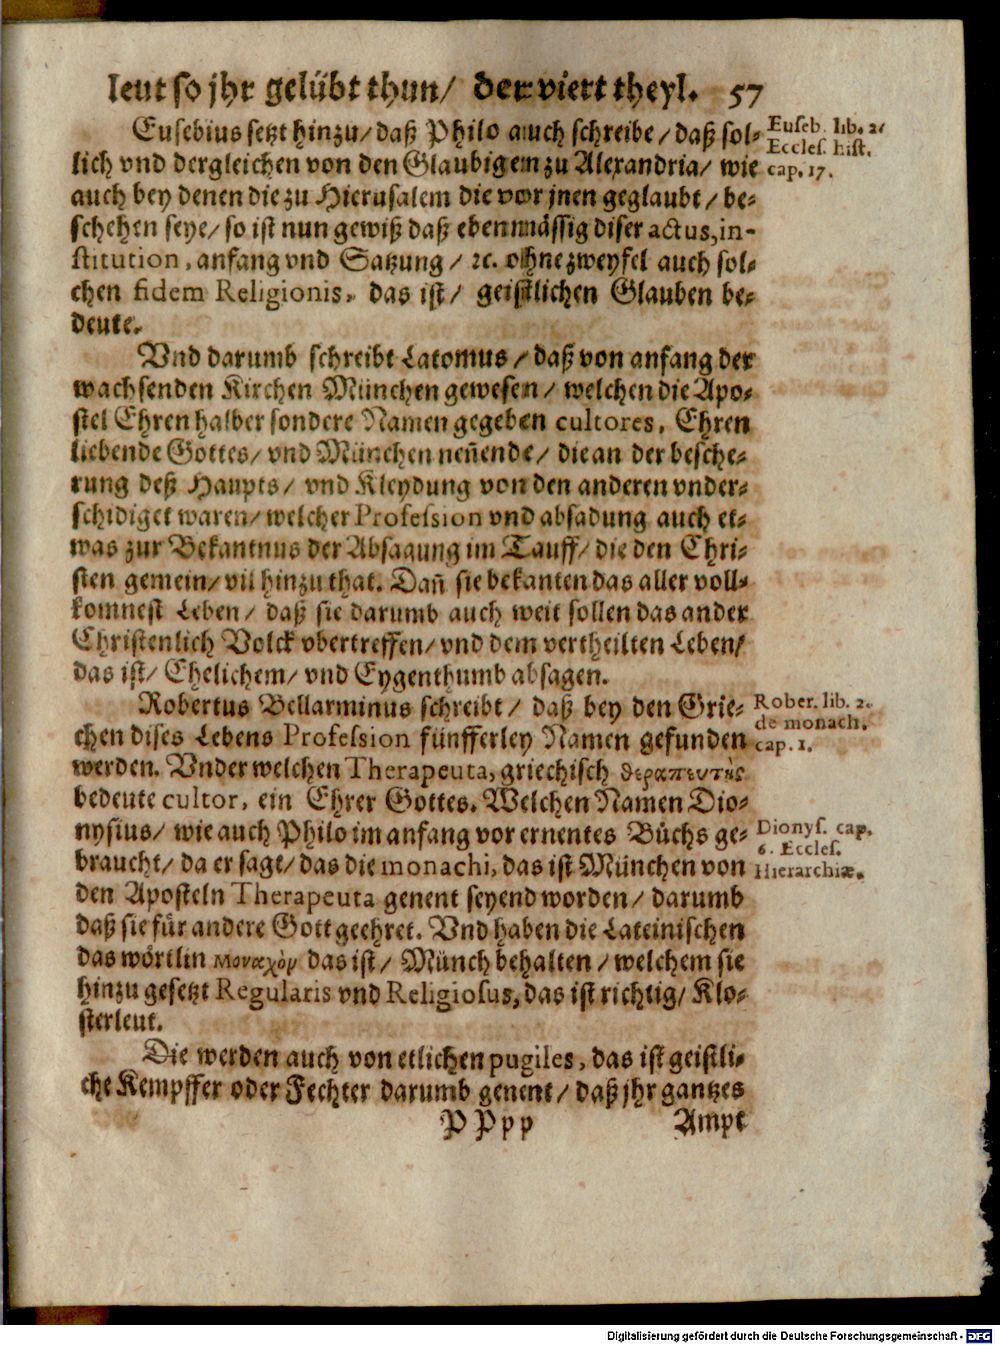 leut so jhr gelübt thun/ der viert theyl. 57
Eusebius setzt hinzu/ daß Philo auch schreibe/ daß sol-
Euseb. lib. 2.
Eccles. hist.
cap. 17.
lich vnd dergleichen von den Glaubigen zu Alexandria/ wie
auch bey denen die zu Hierusalem die vor jnen geglaubt/ be-
schehen seye/ so ist nun gewiß daß ebenmässig diser actus, in-
stitution, anfang vnd Satzung/ ꝛc. ohne zweyfel auch sol-
chen fidem Religionis, das ist/ geistlichen Glauben be-
deute.
Vnd darumb schreibt Latomus/ daß von anfang der
wachsenden Kirchen München gewesen/ welchen die Apo-
stel Ehren halber sondere Namen gegeben cultores, Ehren
liebende Gottes/ vnd München neñende/ die an der besche-
rung deß Haupts/ vnd Kleydung von den anderen vnder-
schidiget waren/ welcher Profession vnd absadung auch et-
was zur Bekantnus der Absagung im Tauff/ die den Chri-
sten gemein/ vil hinzu that. Dañ sie bekanten das aller voll-
komnest Leben/ daß sie darumb auch weit sollen das ander
Christenlich Volck vbertreffen/ vnd dem vertheilten Leben/
das ist/ Ehelichem/ vnd Eygenthumb absagen.
Robertus Bellarminus schreibt/ daß bey den Grie-
Rober. lib. 2.
de monach.
cap. 1.
chen dises Lebens Profession fünfferley Namen gefunden
werden. Vnder welchen Therapeuta, griechisch θεραπευτὴς
bedeute cultor, ein Ehrer Gottes. Welchen Namen Dio-
nysius/ wie auch Philo im anfang vor ernentes Bůchs ge-
Dionys. cap.
6. Eccles.
Hierarchiæ.
braucht/ da er sagt/ das die monachi, das ist München von
den Aposteln Therapeuta genent seyend worden/ darumb
daß sie für andere Gott geehret. Vnd haben die Lateinischen
das wörtlin Μοναχὸν das ist/ Münch behalten/ welchem sie
hinzu gesetzt Regularis vnd Religiosus, das ist richtig/ Klo-
sterleut.
Die werden auch von etlichen pugiles, das ist geistli-
che Kempffer oder Fechter darumb genent/ daß jhr gantzes
P P p p Ampt
Digitalisierung gefördert durch die Deutsche Forschungsgemeinschaft - DFG